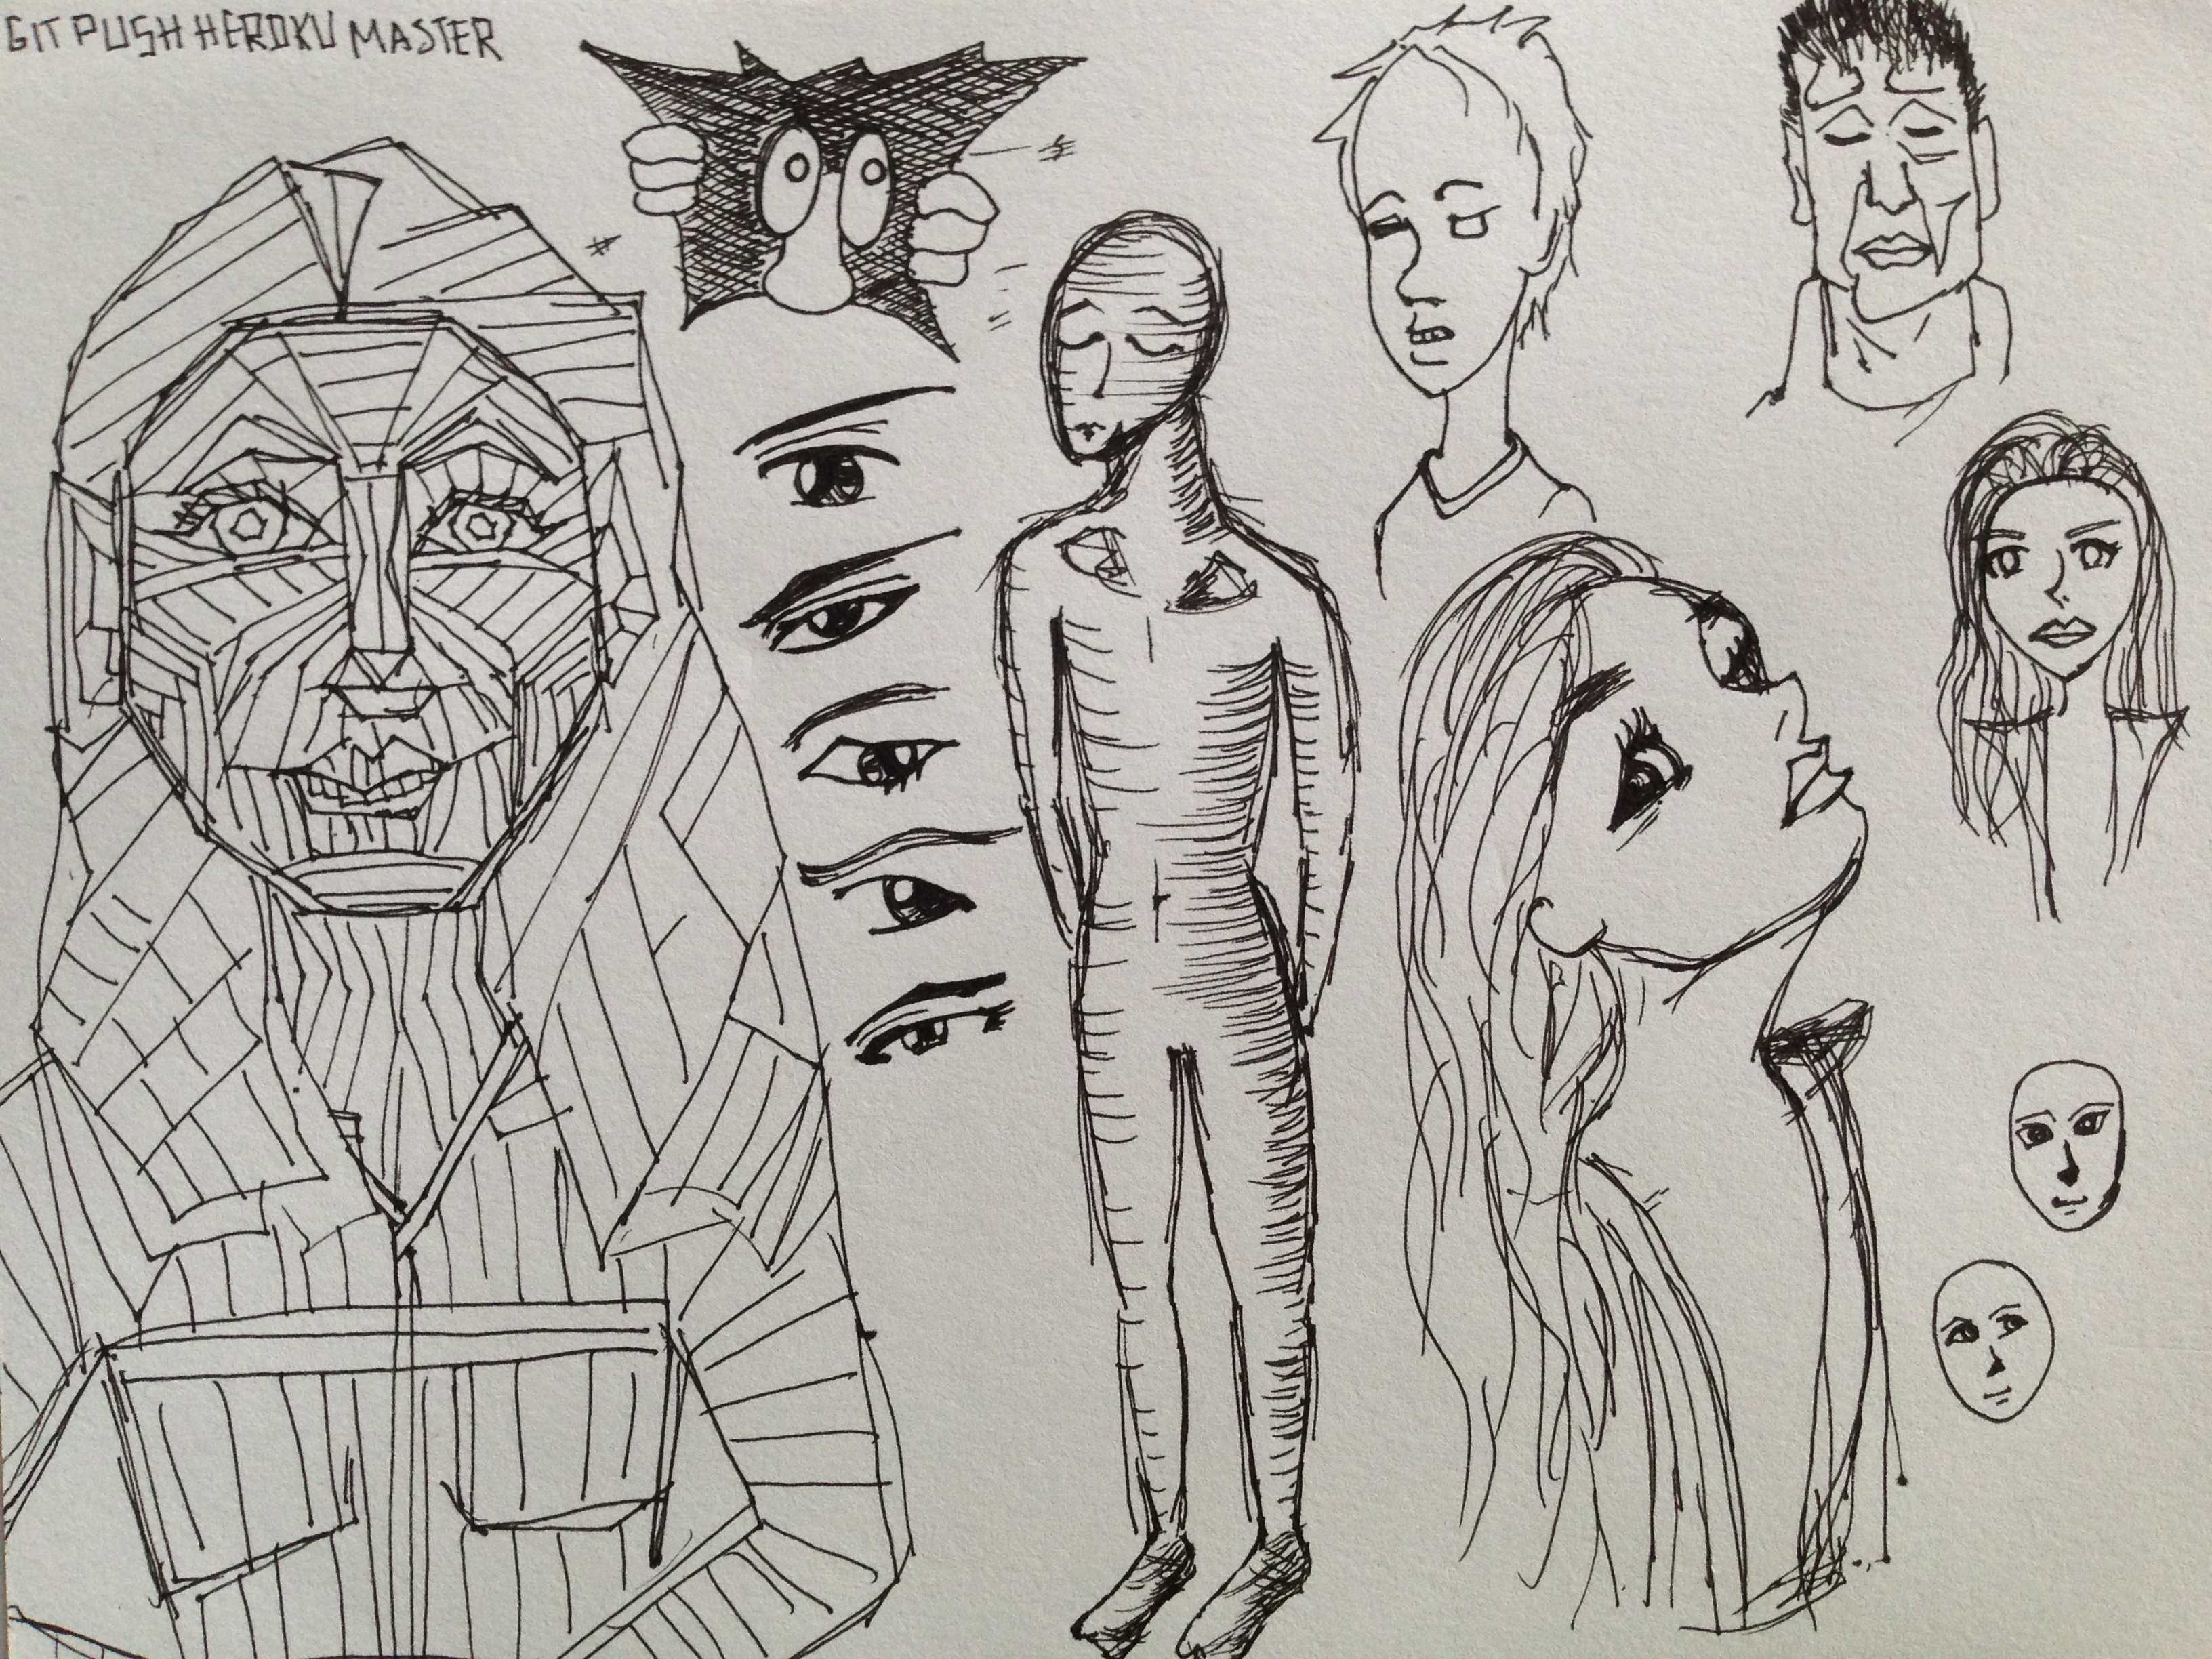 GIT PUSH HEROKU MASTER